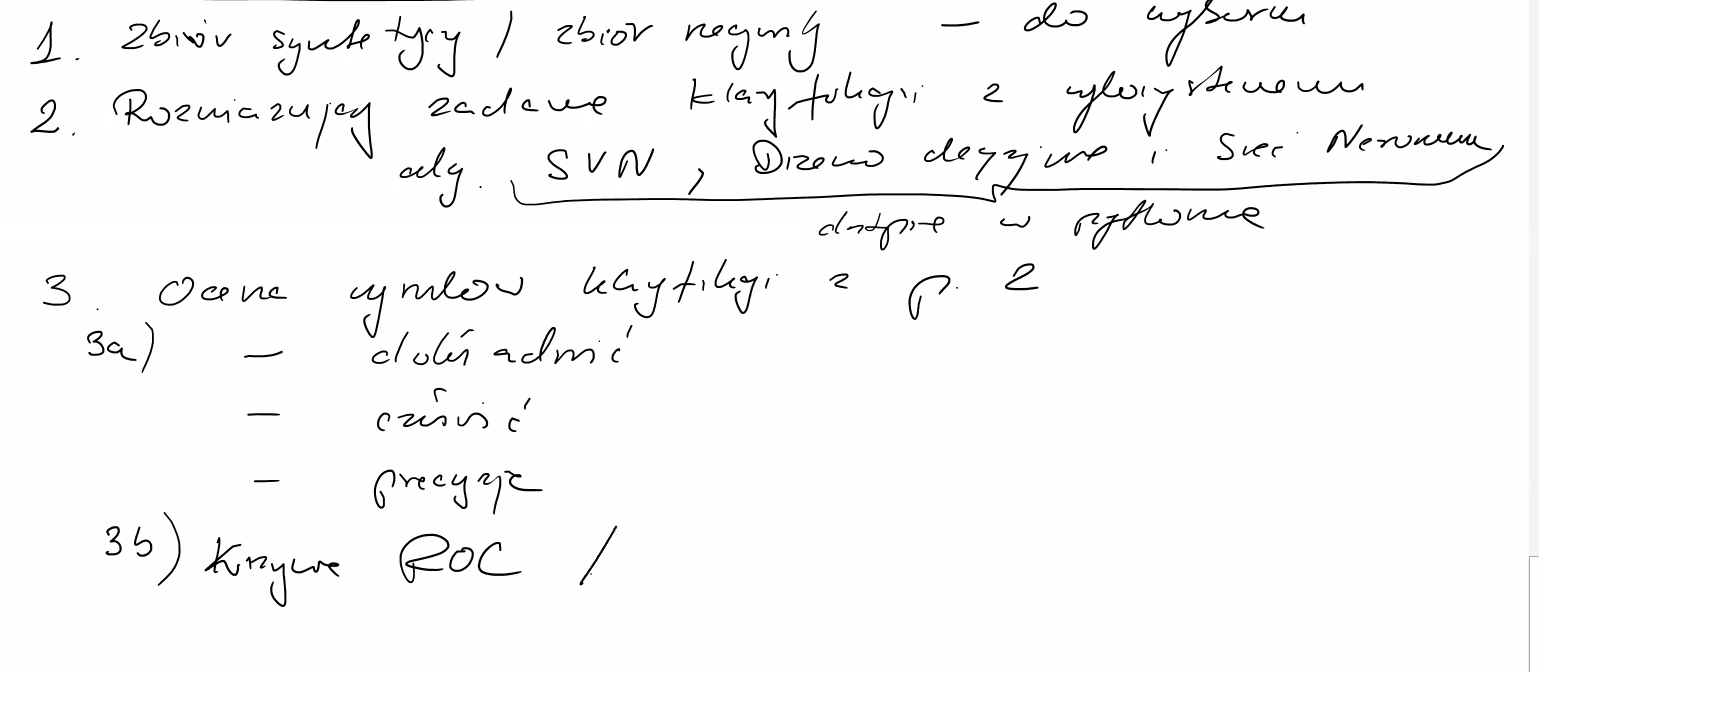 1. Zbiór syntetyczny / zbiór rzeczywisty – do wyboru
2. Rozwiązujemy zadanie klasyfikacji z wykorzystaniem
alg. SVN, Drzewo decyzyjne i Sieć Neronowa
dostępne w pythonie
3. Ocena wyników klasyfikacji z p. 2
3a) – dokładność
– czułość
– precyzja
3b) Krzywe ROC /